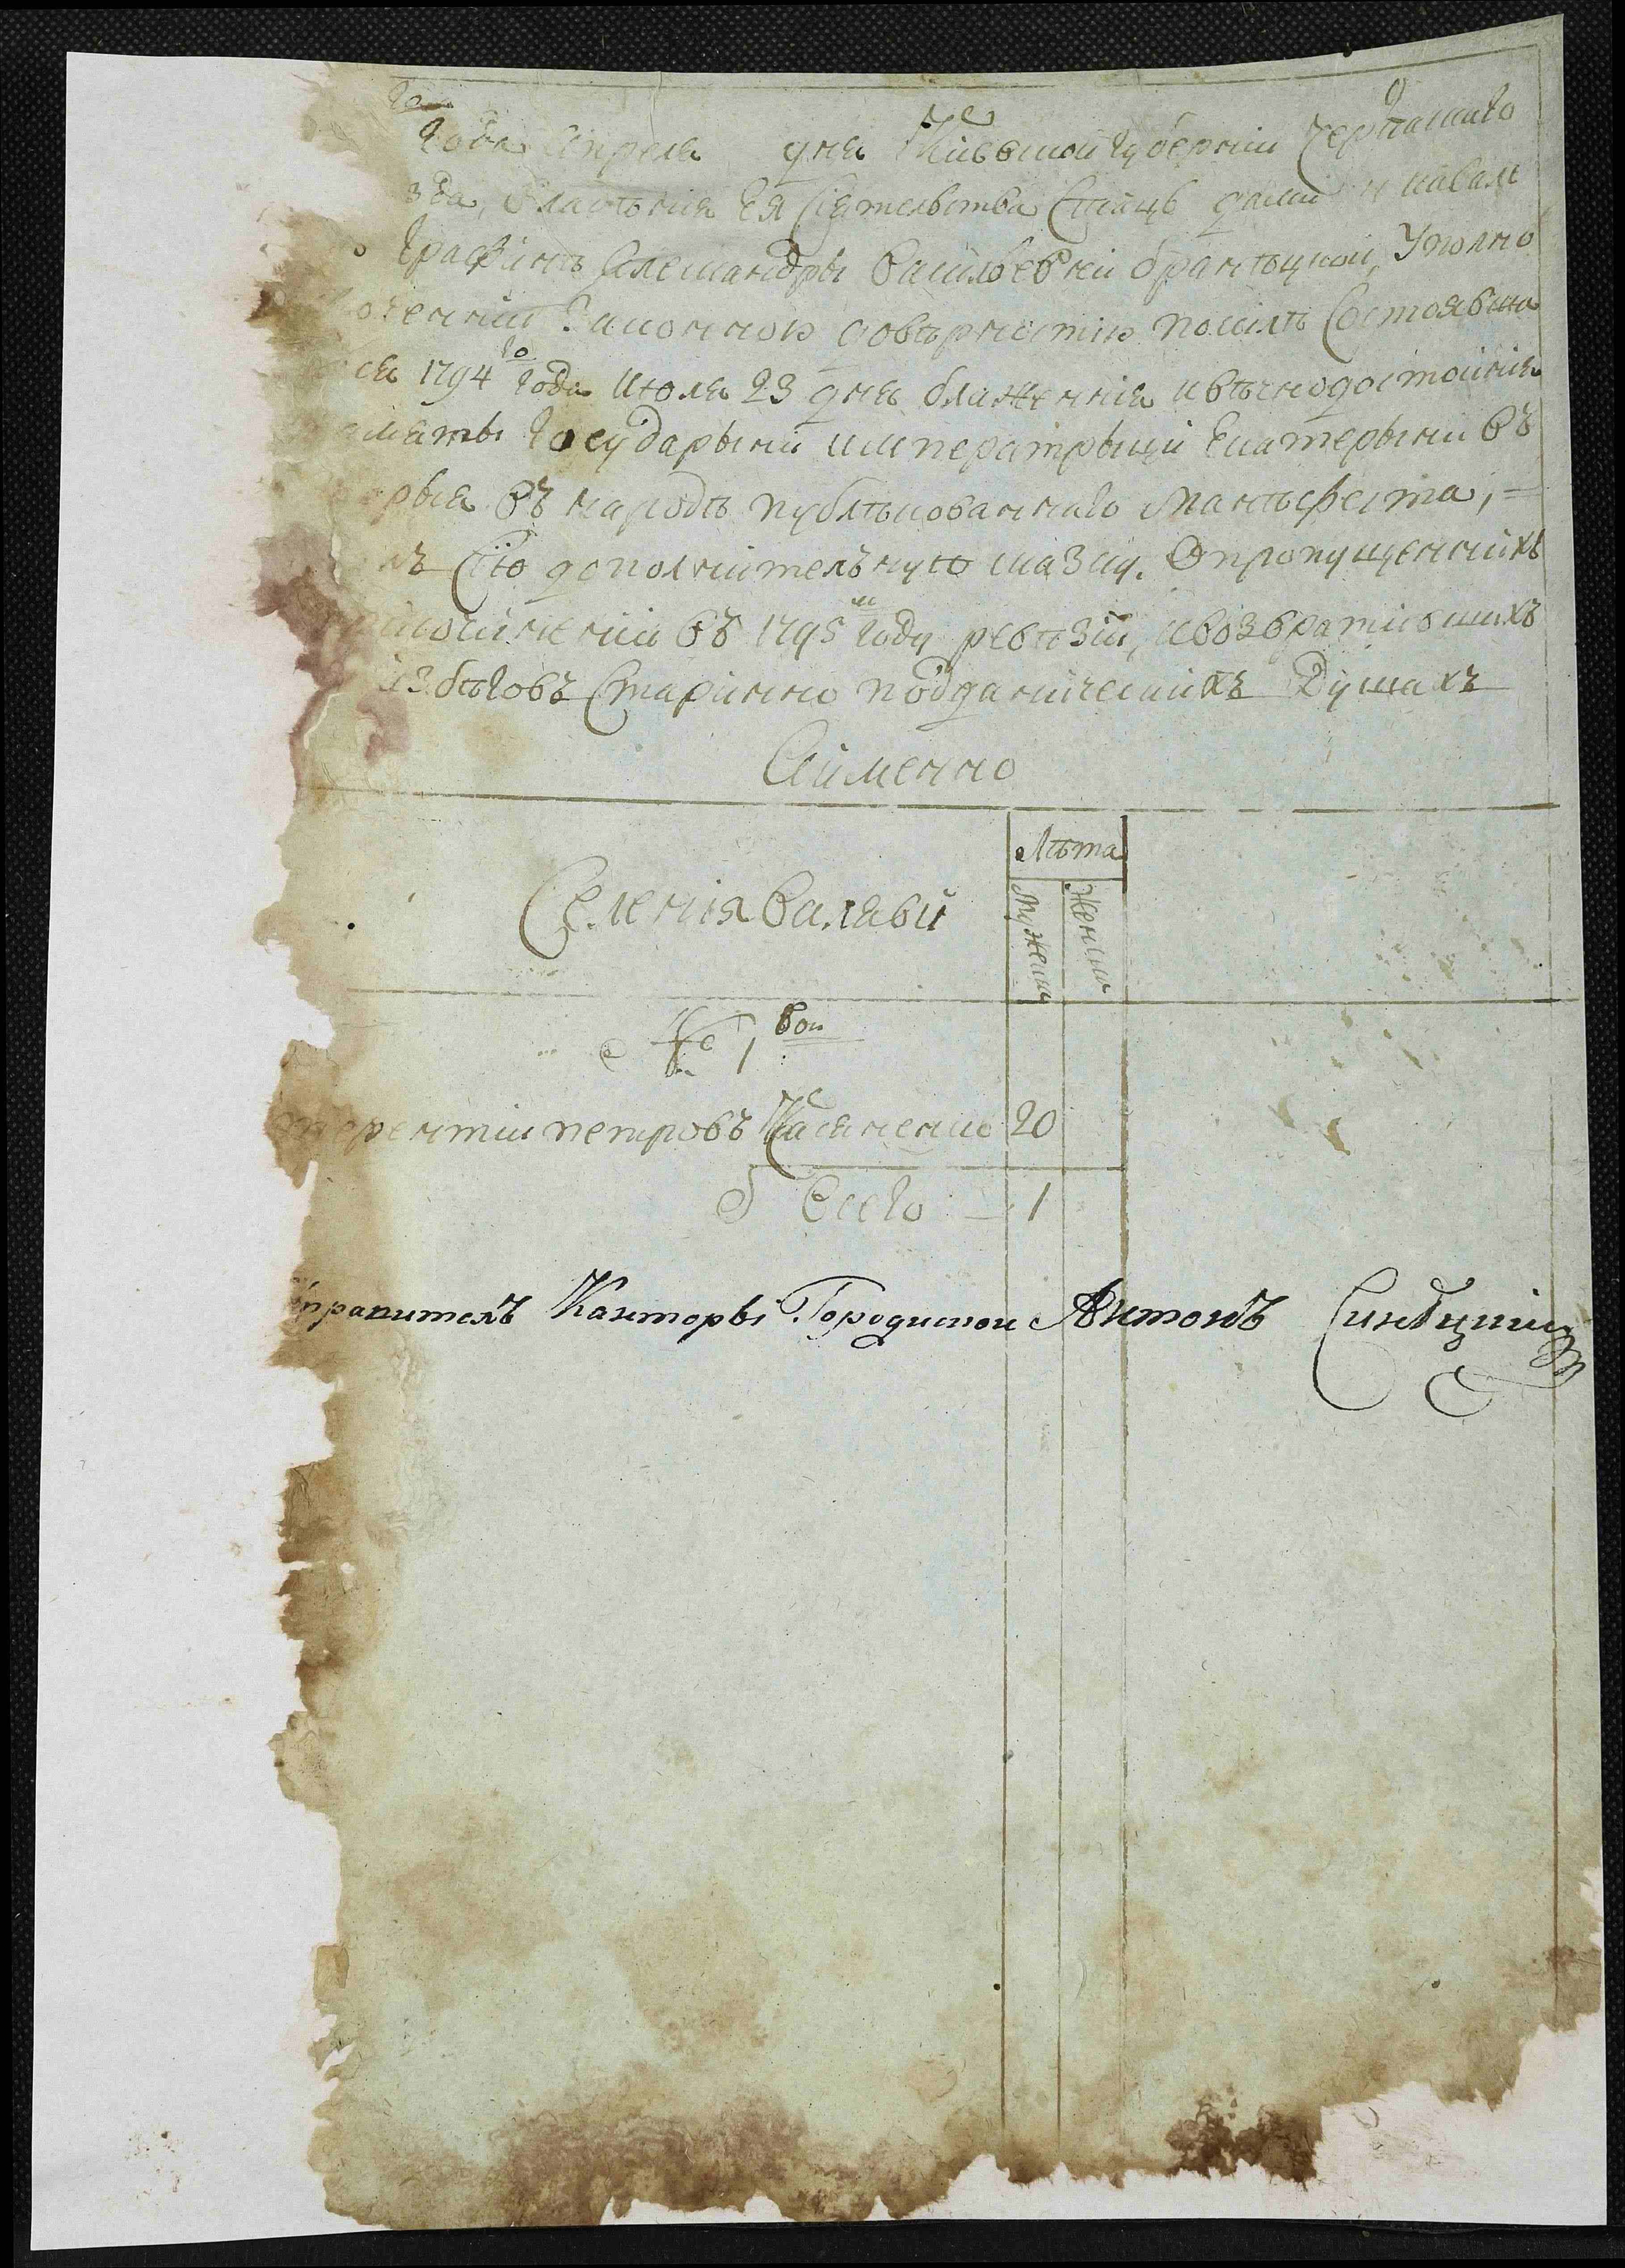 го
года Апреля дня Киевской губернии Черкаскаго
зда, владѣния Ея Сіятельства Статсъ дами и кавале
графинѣ Александры Васильевни Бранѣцкой, Уполно
моченний Законною довѣрностию посилѣ Состоявша
ся 1794го года Июля 23 дня блаженния ивѣчнодостойния
амяты Государыни императрыци Екатерыни въ
орыя въ народѣ публѣкованнаго манѣфеста, =
лъ Сію дополнителъную сказку. О пропущеннихъ
въ 1795м году ревѣзии, ивозвратившихъ
изъ бѣговъ Старинно подданическихъ Душахъ
Аименно
Лѣта
Селения Валявы
Мужеска
Женска
№ 1вои
терентии петровъ Касяненко 20
Всего 1
правитель Канторы Городиской Антонъ Синѣцкий